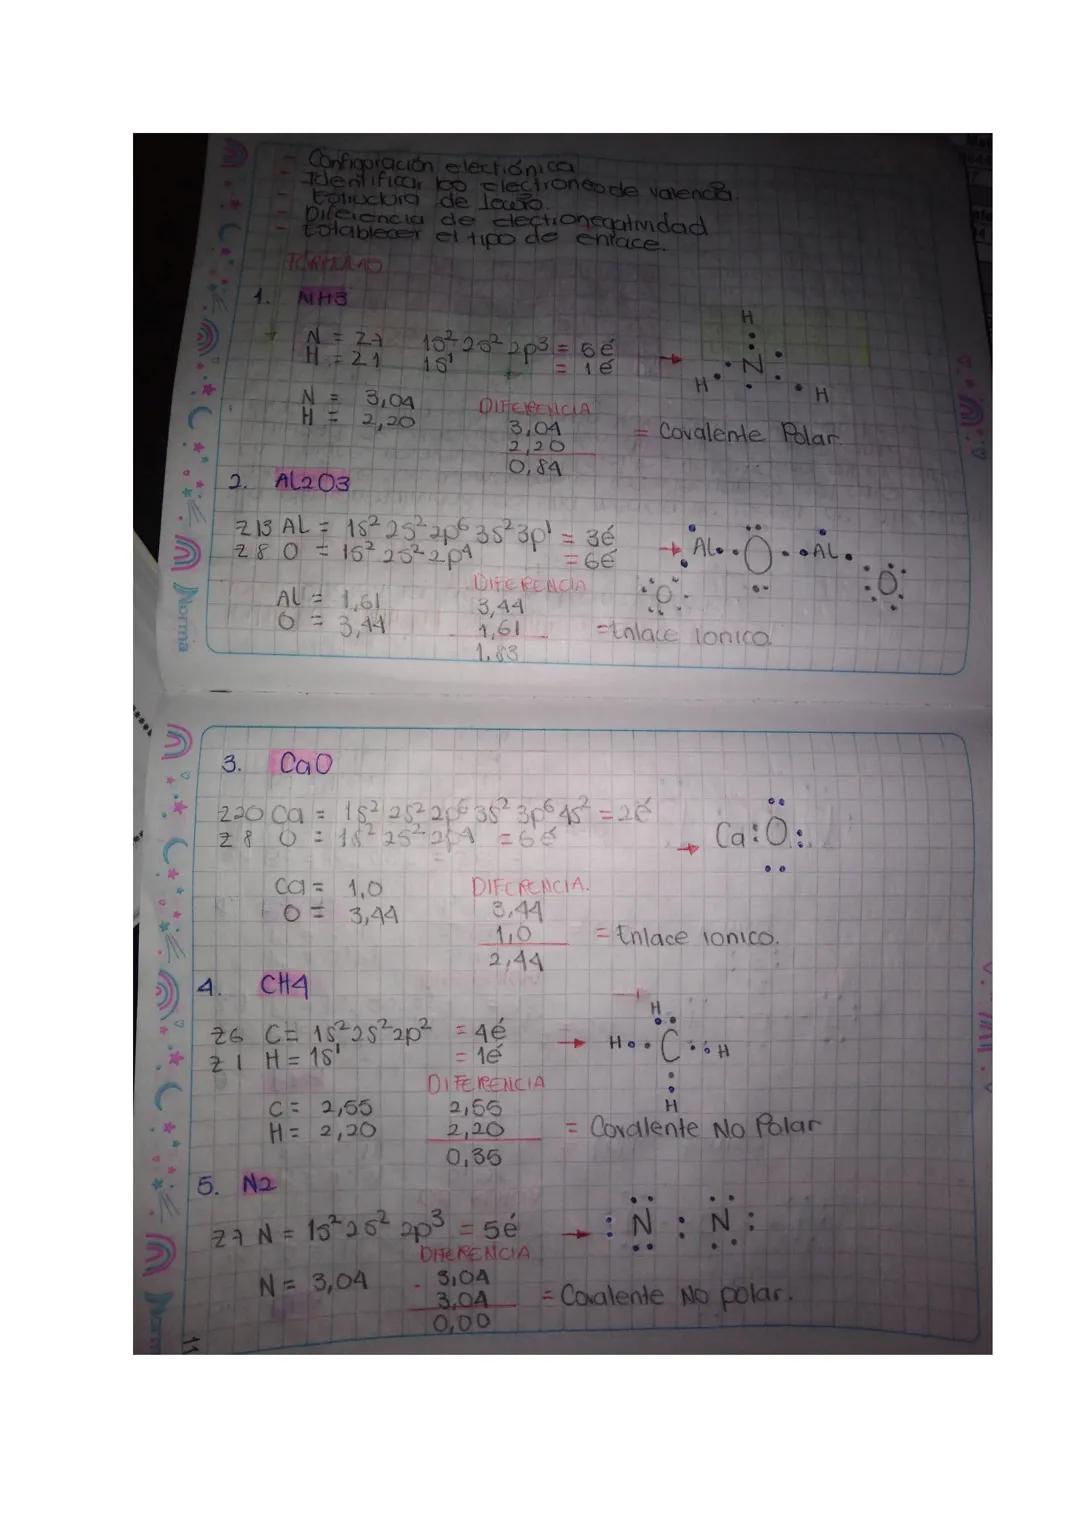 - Configuración electrónica
- Identificar los electrones de valencia.
- Estructura de Lewis.
- Diferencia de electronegatividad
- Establecer el tipo de enlace.
FORMULAS
1. NH3
N = Z7 1s² 2s² 2p³ = 5é
H = Z1 1s¹ = 1é
H
N
H H
N = 3,04
H = 2,20
DIFERENCIA
3,04
2,20
0,84
= Covalente Polar
2. AL2O3
Z13 AL = 1s² 2s² 2p⁶ 3s² 3p¹ = 3é
Z8 O = 1s² 2s² 2p⁴ = 6é
AL O AL O
O
AL = 1,61
O = 3,44
DIFERENCIA
3,44
1,61
1,83
= Enlace ionico.
Norma
3. CaO
Z20 Ca = 1s² 2s² 2p⁶ 3s² 3p⁶ 4s² = 2é
Z8 O = 1s² 2s² 2p⁴ = 6é
Ca:O:
Ca = 1,0
O = 3,44
DIFERENCIA.
3,44
1,0
2,44
= Enlace ionico.
4. CH4
Z6 C = 1s² 2s² 2p² = 4é
Z1 H = 1s¹ = 1é
H
H C H
H
C = 2,55
H = 2,20
DIFERENCIA
2,55
2,20
0,35
= Covalente No Polar
5. N2
Z7 N = 1s² 2s² 2p³ = 5é
: N : N :
N = 3,04
DIFERENCIA
- 3,04
3,04
0,00
= Covalente No polar.
Norm
11